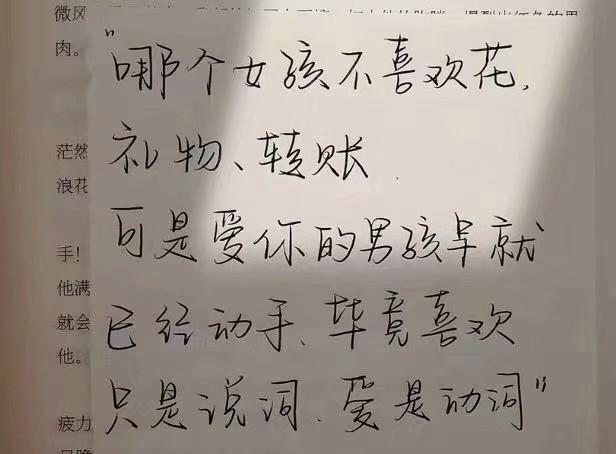 微风
肉。
"哪个女孩不喜欢花,
礼物、转账
茫然
浪花
可是爱你的男孩早就
手!
他满
已经动手、毕竟喜欢
就会
他。
只是说词、爱是动词"
疲力